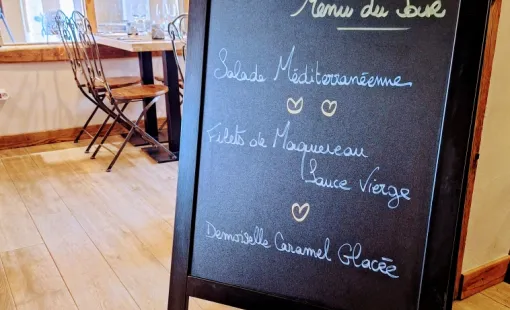 Menu du Jour
Salade Méditerranéenne
Filets de Maquereau
Sauce Vierge
Demoiselle Caramel Glacée